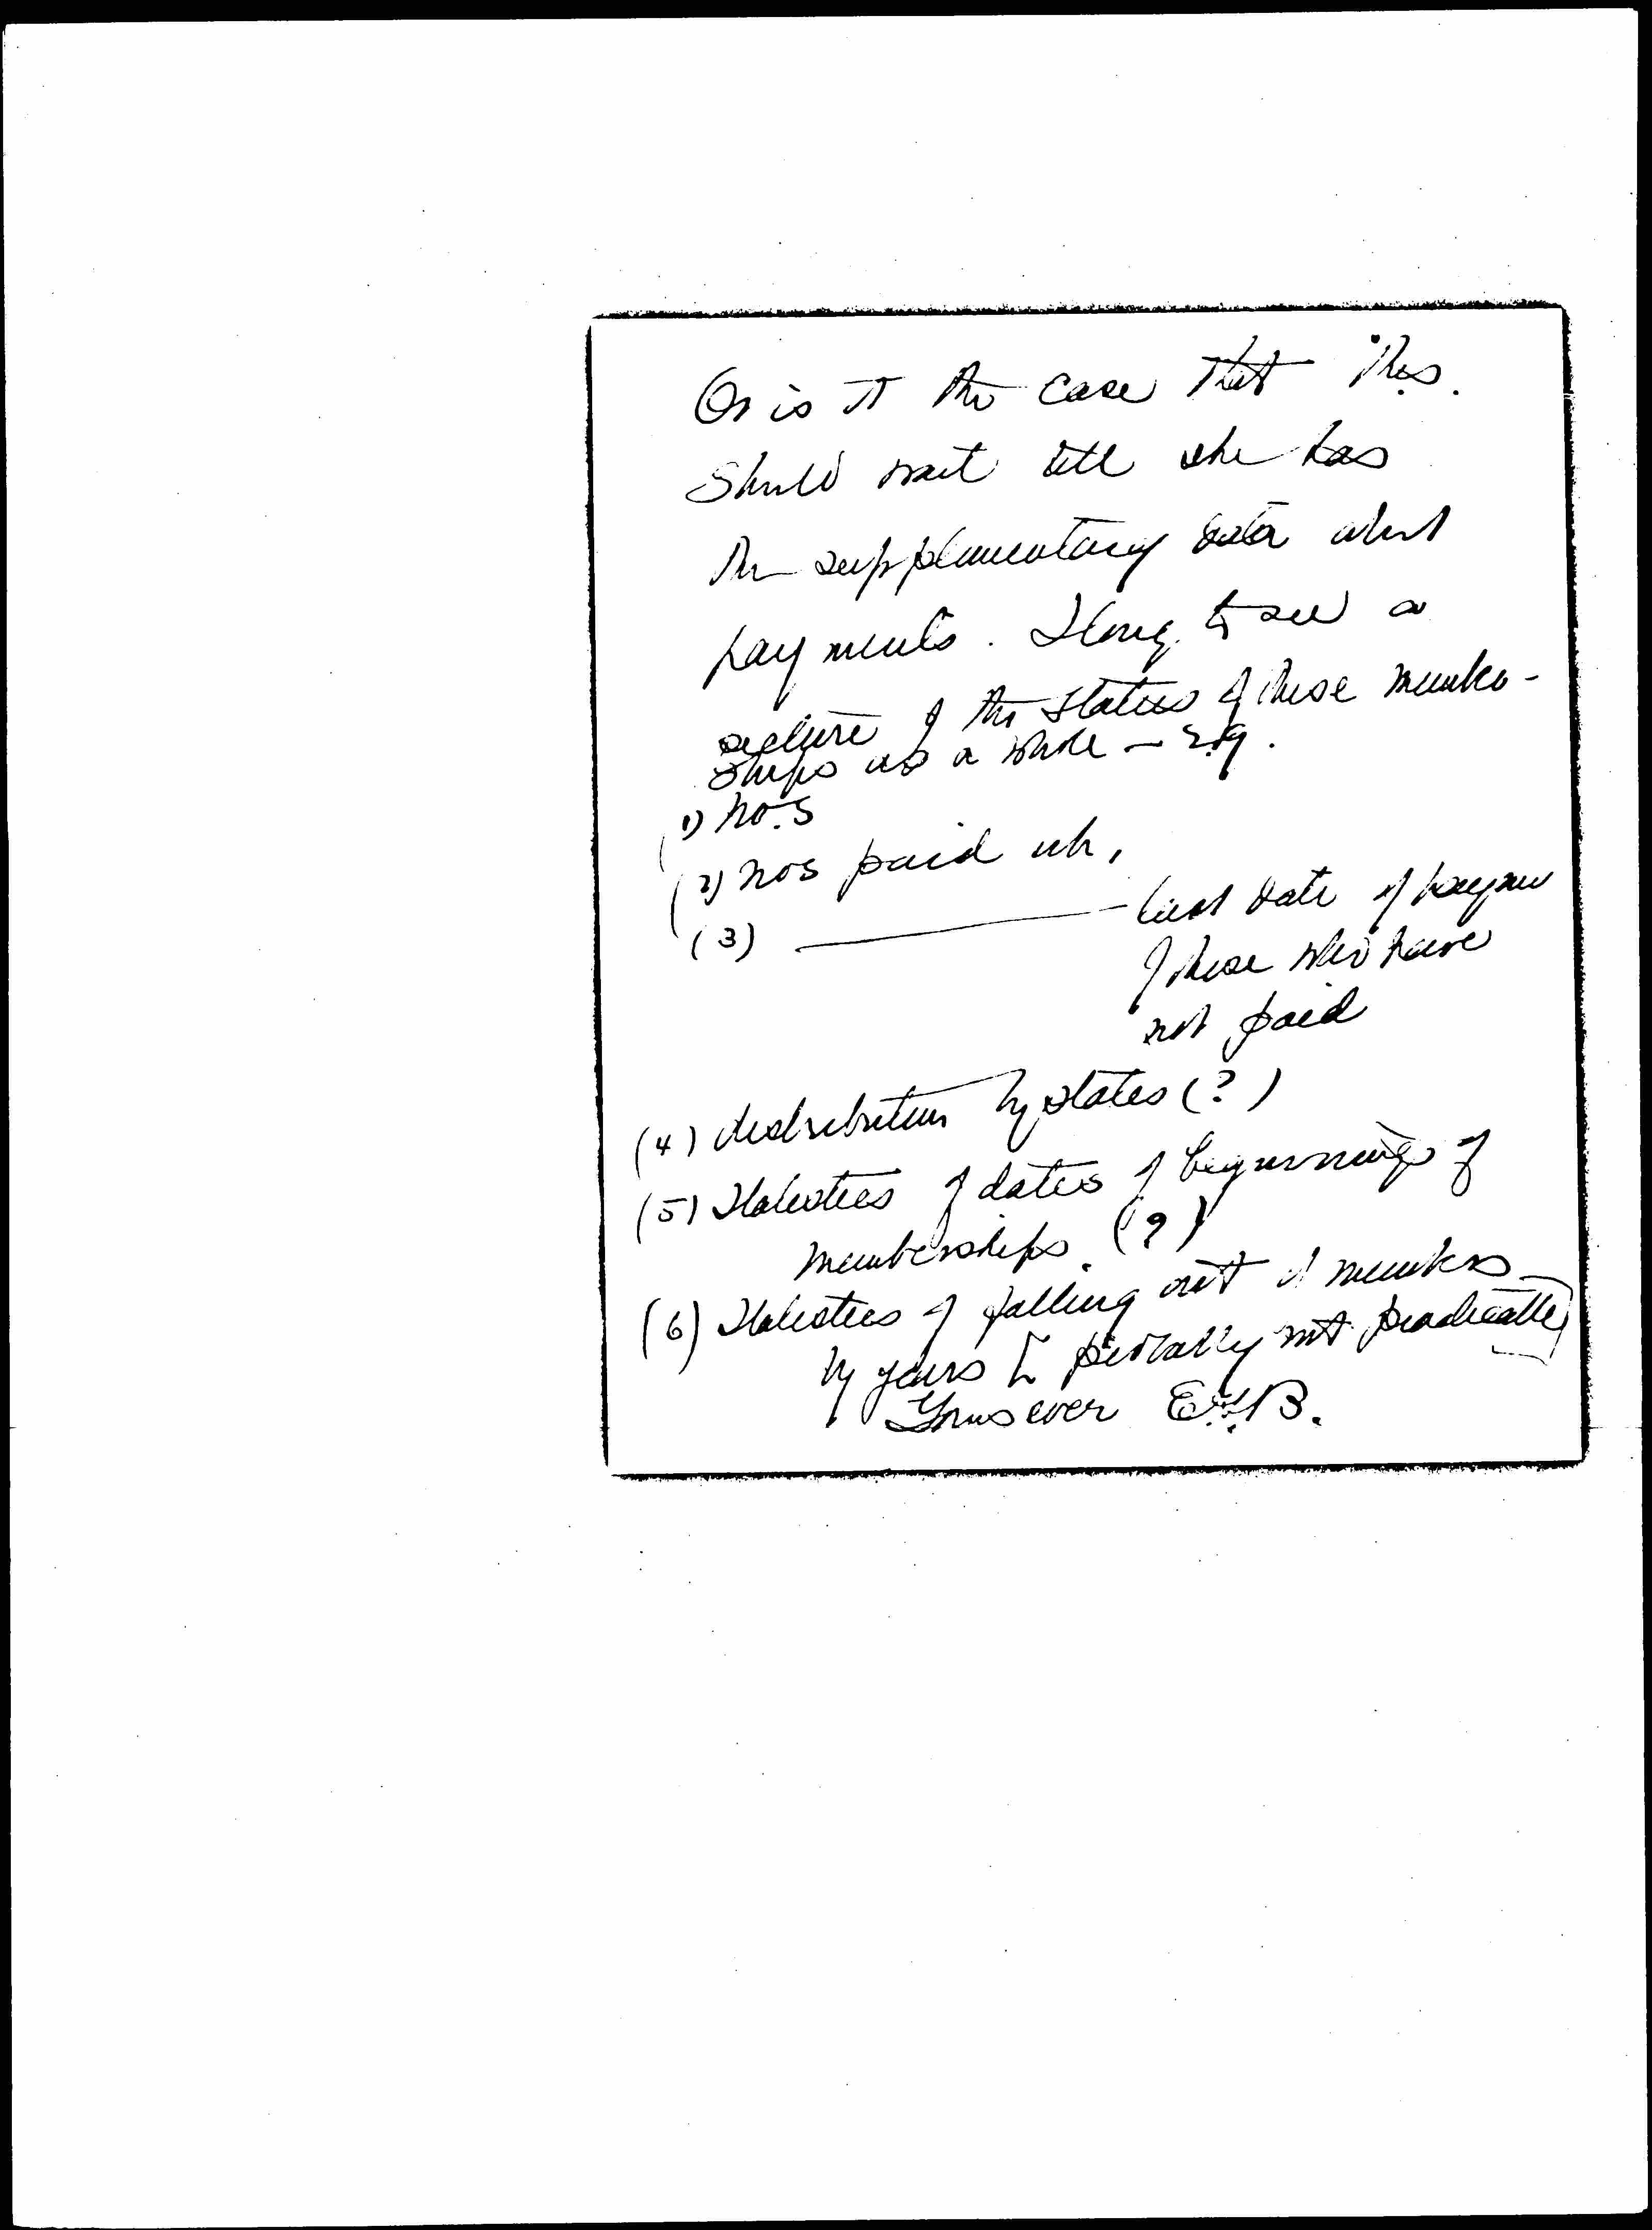 Or is it the case that this
should wait till she has
the supplementary data about
payments. I long to see a
picture of the status of these member-
ships as a whole — e.g.
(1) nos
(2) nos paid up,
(3) ——— last date of
of those who have
not paid
(4) distribution by states (?)
(5) Statistics of dates of beginnings of
memberships. (?)
(6) Statistics of falling out of members
by years [probably not practicable]
Yours ever E.G.B.